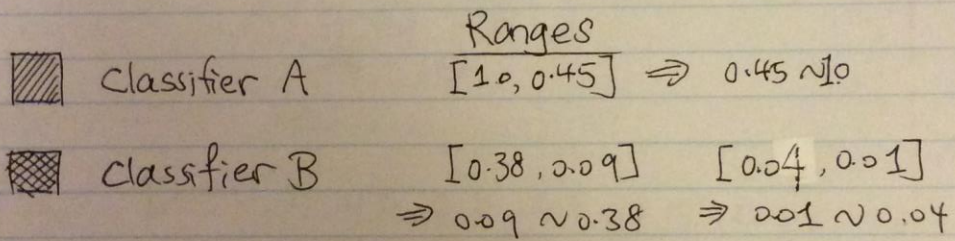 Ranges
Classifier A [1.0, 0.45] ⇒ 0.45 ~ 1.0
Classifier B [0.38, 0.09] [0.04, 0.01]
⇒ 0.09 ~ 0.38 ⇒ 0.01 ~ 0.04